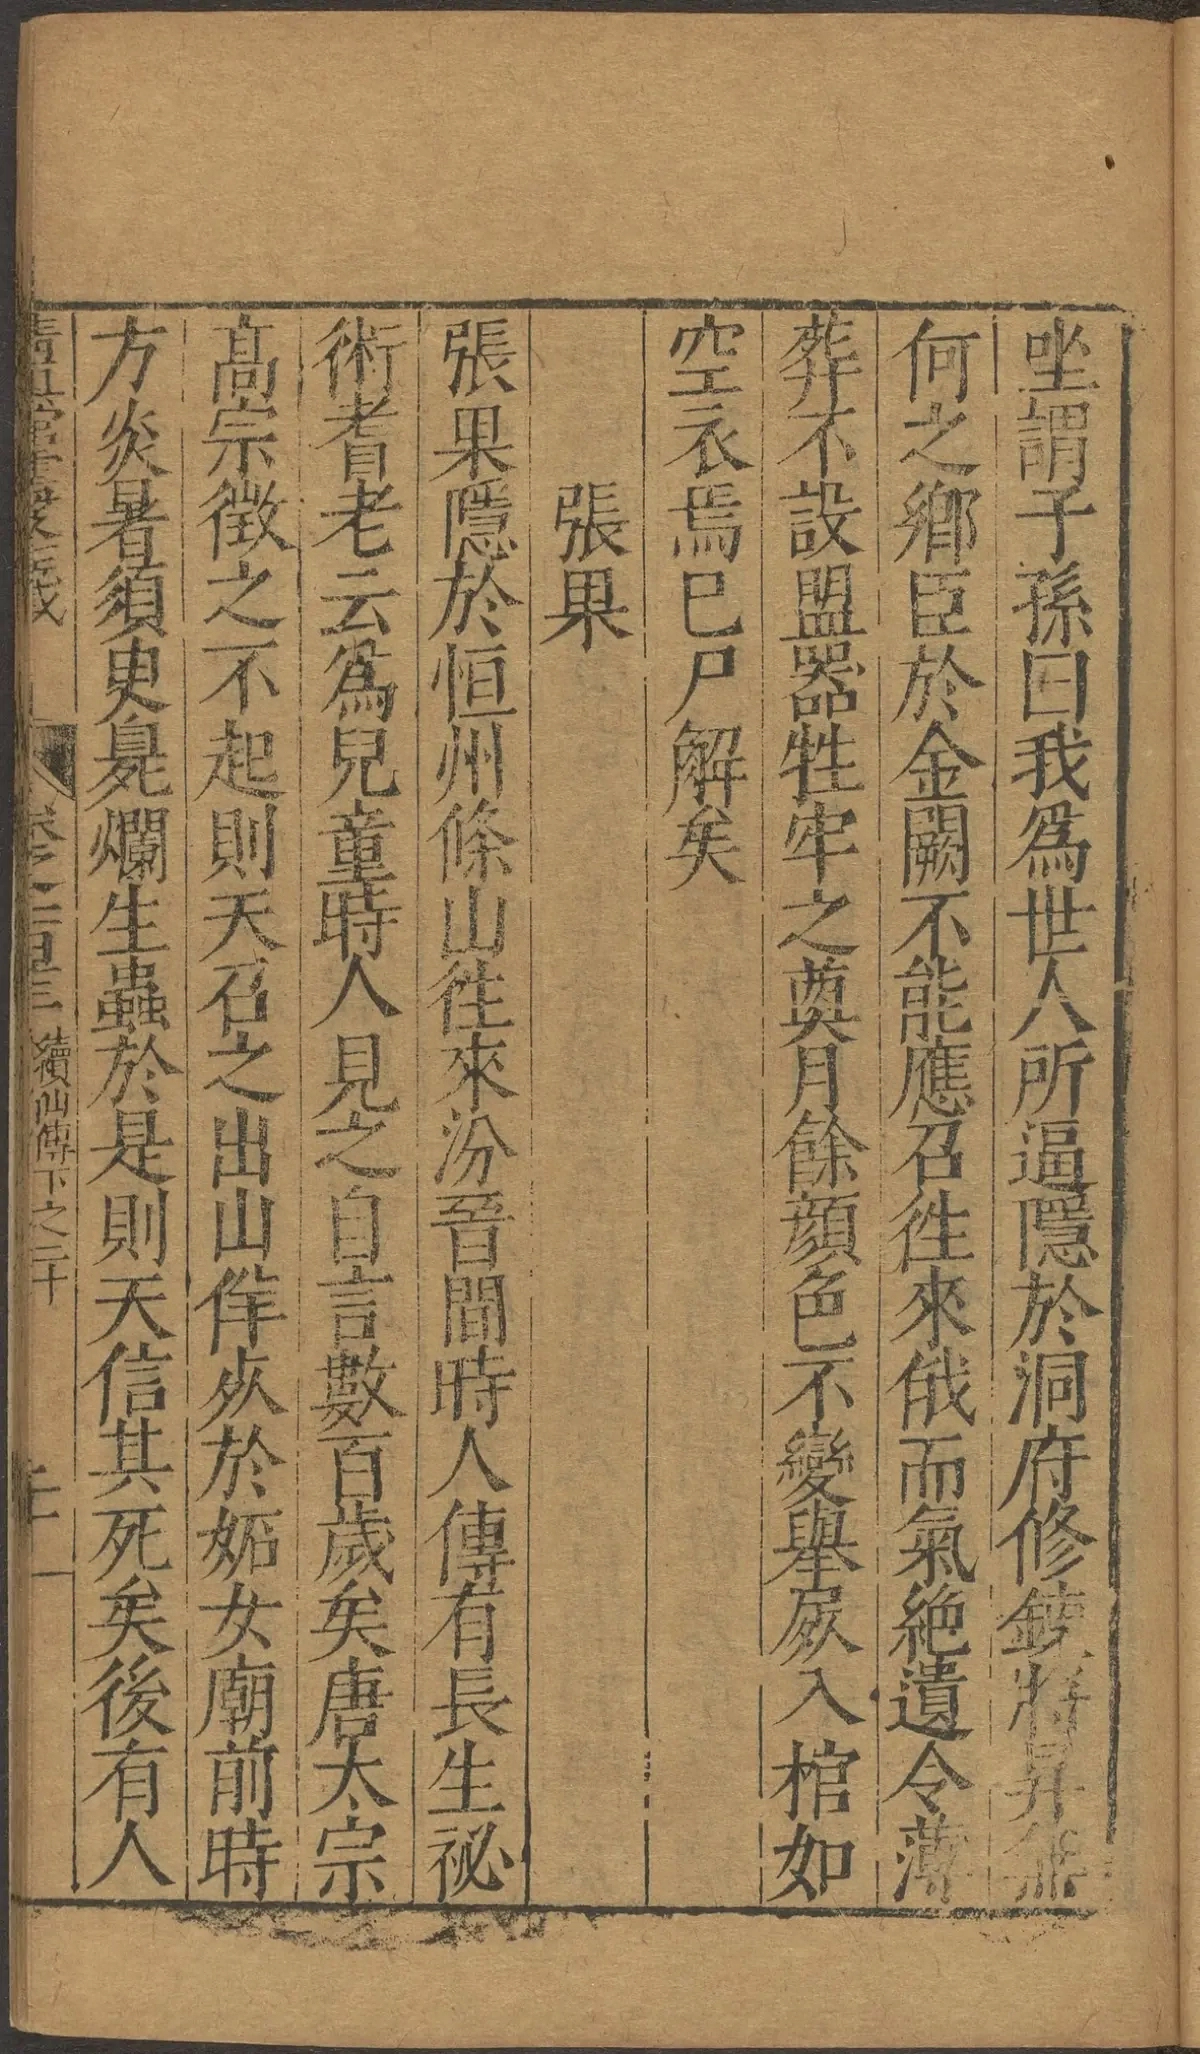 坐謂子孫曰我爲世人所逼隱於洞府修鍊將昇無
何之鄉臣於金闕不能應召徃來俄而氣絶遺令薄
葬不設盟器牲牢之奠月餘顔色不變舉屍入棺如
空衣焉巳尸解矣
張果
張果隱於恒州條山徃來汾晉間時人傳有長生祕
術耆老云爲兒童時人見之自言數百歲矣唐太宗
髙宗徴之不起則天召之出山佯死於妬女廟前時
方炎暑須臾臰爛生蟲於是則天信其死矣後有人
卷之一百十三 續仙傳下之二十